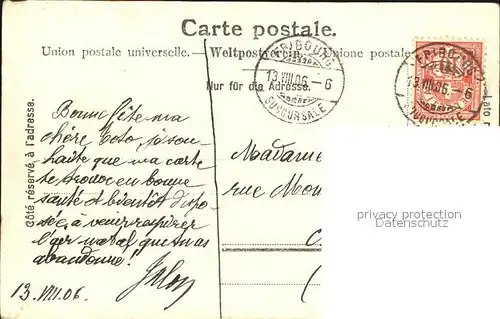 Carte postale.
Union postale universelle. — Weltpostverein. — Unione postale
Nur für die Adresse.
Côté réservé à l'adresse.
FRIBOURG
13.VIII.06.–6
SUCCURSALE
FRIBOURG
13.VIII.06.–6
SUCCURSALE
Bonne fête ma
chère Toto, je sou-
haite que ma carte
te trouve en bonne
santé et bientôt dispo-
sée à venir respirer
l'air natal que tu as
abandonné!
13 VIII 06.
Madame
rue Mon
privacy protection
Datenschutz